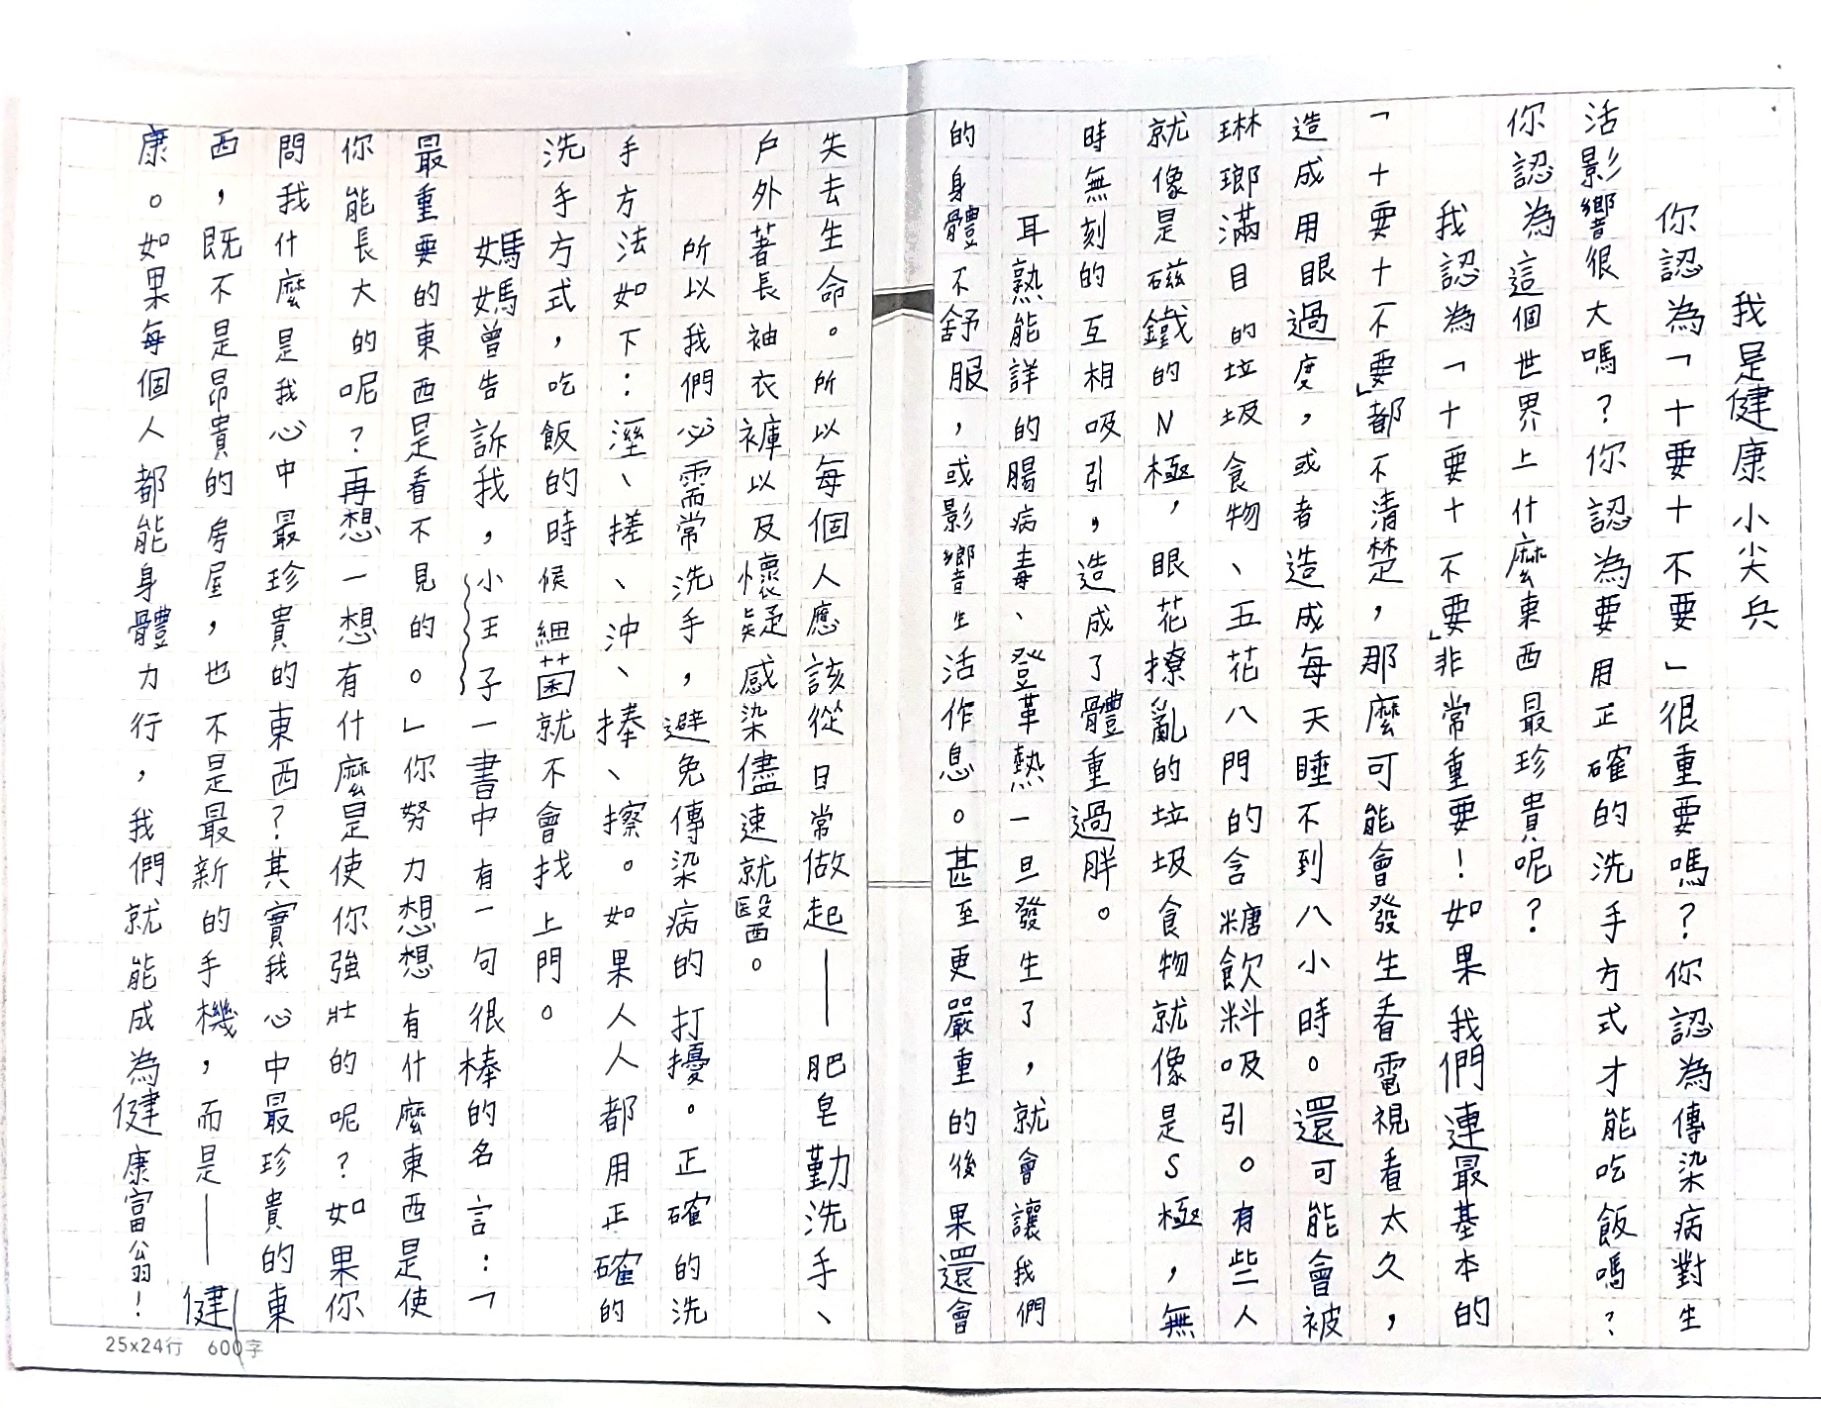 我是健康小尖兵
你認為「十要十不要」很重要嗎？你認為傳染病對生
活影響很大嗎？你認為要用正確的洗手方式才能吃飯嗎？
你認為這個世界上什麼東西最珍貴呢？
我認為「十要十不要」非常重要！如果我們連最基本的
「十要十不要」都不清楚，那麼可能會發生看電視看太久，
造成用眼過度，或者造成每天睡不到八小時。還可能會被
琳瑯滿目的垃圾食物、五花八門的含糖飲料吸引。有些人
就像是磁鐵的N極，眼花撩亂的垃圾食物就像是S極，無
時無刻的互相吸引，造成了體重過胖。
耳熟能詳的腸病毒、登革熱一旦發生了，就會讓我們
的身體不舒服，或影響生活作息。甚至更嚴重的後果還會
失去生命。所以每個人應該從日常做起——肥皂勤洗手、
戶外著長袖衣褲以及懷疑感染儘速就醫。
所以我們必需常洗手，避免傳染病的打擾。正確的洗
手方法如下：溼、搓、沖、捧、擦。如果人人都用正確的
洗手方式，吃飯的時候細菌就不會找上門。
媽媽曾告訴我，小王子一書中有一句很棒的名言：「
最重要的東西是看不見的。」你努力想想有什麼東西是使
你能長大的呢？再想一想有什麼是使你強壯的呢？如果你
問我什麼是我心中最珍貴的東西？其實我心中最珍貴的東
西，既不是昂貴的房屋，也不是最新的手機，而是——健
康。如果每個人都能身體力行，我們就能成為健康富翁！
25x24行 600字